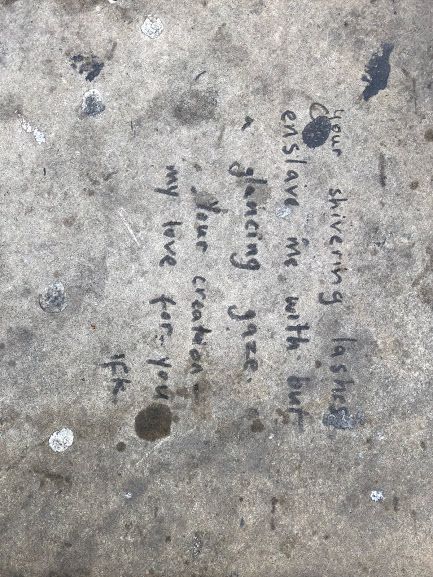 your shivering lashes
enslave me with but
a glancing gaze.
Your creation –
my love for you